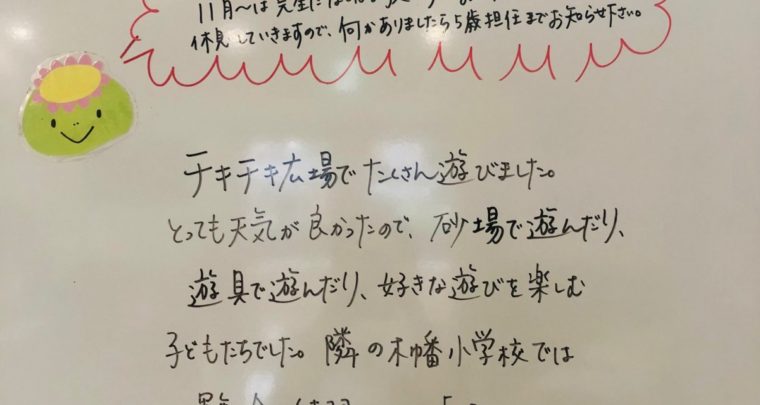 11月〜は完全に
休見していきますので、何かありましたら5歳担任までお知らせ下さい。
チキチキ広場でたくさん遊びました。
とっても天気が良かったので、砂場で遊んだり、
遊具で遊んだり、好きな遊びを楽しむ
子どもたちでした。隣の木幡小学校では